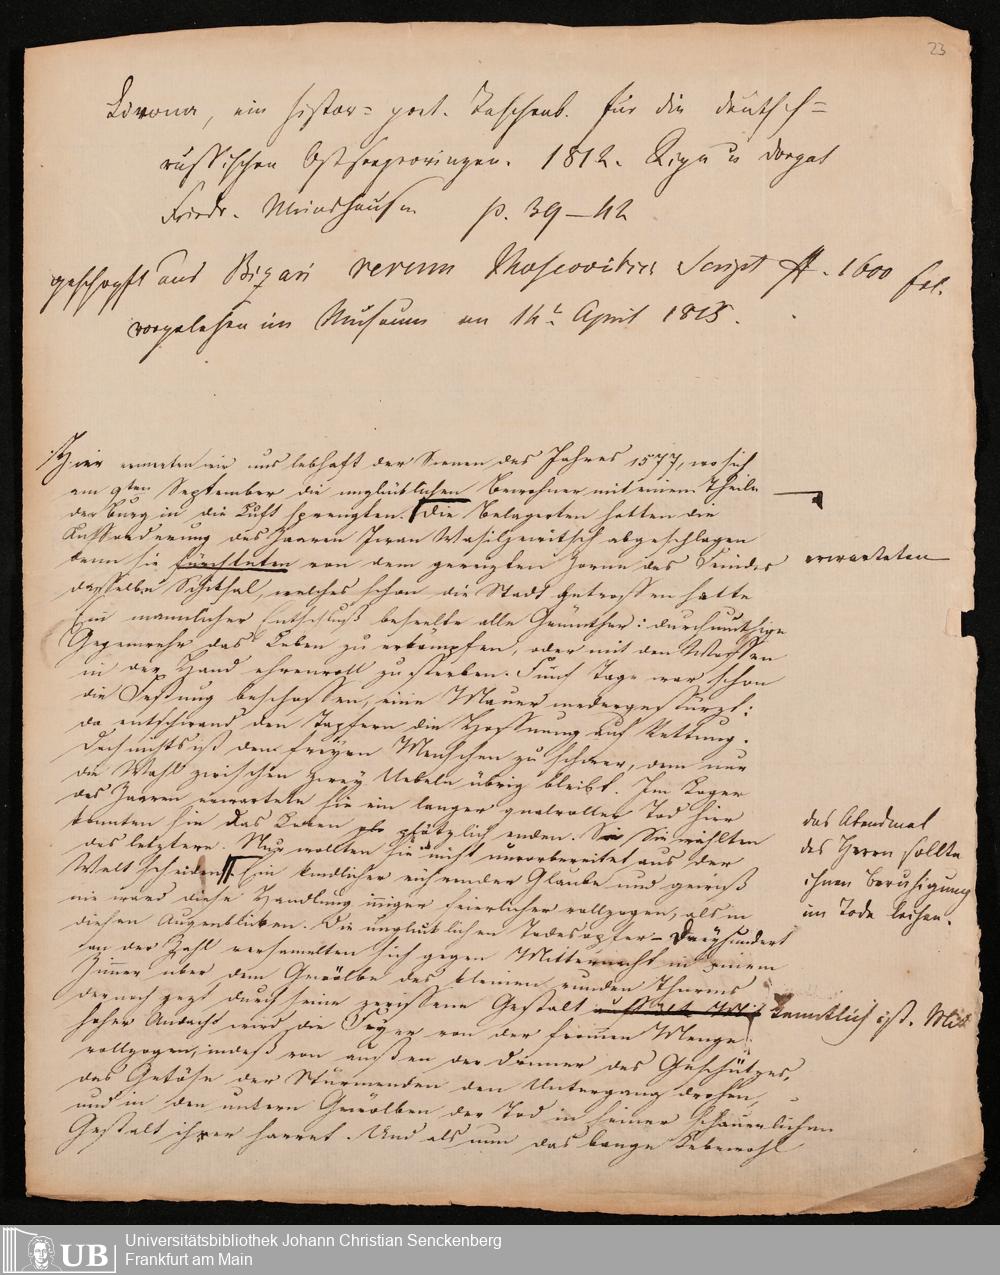 23
Livona, ein histor= poet. Taschenb. für die deutsch=
russischen Ostseeprovinzen. 1812. Riga u Dorpat
Friedr. Meinshausen p. 39–42
geschöpft aus rerum Moscoviticar Script 1600 fol.
vorgelesen im Museum am 14t April 1815.
Hier erinnerten wir uns lebhaft der Scenen des Jahres 1577, wo sich
am 9ten September die unglücklichen Bewohner mit einem Theile
der Burg in die Luft sprengten. Die Belagerten hatten die
Aufforderung des Zaaren Iwan Wasiljewitsch abgeschlagen
denn sie fürchteten von dem gereizten Zorne des Feindes
erwarteten
dasselbe Schicksal, welches schon die Stadt getroffen hatte
Ein männlicher Entschluß beseelte alle Gemüther: durch muthige
Gegenwehr das Leben zu erkämpfen, oder mit den Waffen
in der Hand ehrenvoll zu sterben. Fünf Tage war schon
die Festung beschossen, eine Mauer niedergestürzt:
da entschwand den Tapfern die Hoffnung auf Rettung.
Doch nichts ist dem freyen Menschen zu schwer, dem nur
die Wahl zwischen zwey Uebeln übrig bleibt. Im Lager
des Zaaren erwartete sie ein langer qualvoller Tod hier
konnten sie das Leben plötzlich enden. Sie wählten
das letztere. Nur wollten sie nicht unvorbereitet aus der
Welt scheiden. Ein kindlicher rührender Glaube und gewiß
das Abendmal
des Herrn sollte
ihnen Beruhigung
im Tode leihen.
nie ward diese Handlung inniger feierlicher vollzogen, als in
diesen Augenblicken. Die unglücklichen Todesopfer – Dreyhundert
an der Zahl versamelten sich gegen Mitternacht in einem
Zimmer über dem Gewölbe des kleinen runden Thurms
der noch jezt durch seine zerrissene Gestalt kenntlich ist. Mit
hoher Andacht wird die Feyer von der fromen Menge
vollzogen, indeß von außen der Donner des Geschützes,
das Getöse der Stürmenden den Untergang drohen,
und in den untern Gewölben der Tod in seiner schauerlichen
Gestalt ihrer harret. Und als nun das bange Lebewohl
UB
Universitätsbibliothek Johann Christian Senckenberg
Frankfurt am Main